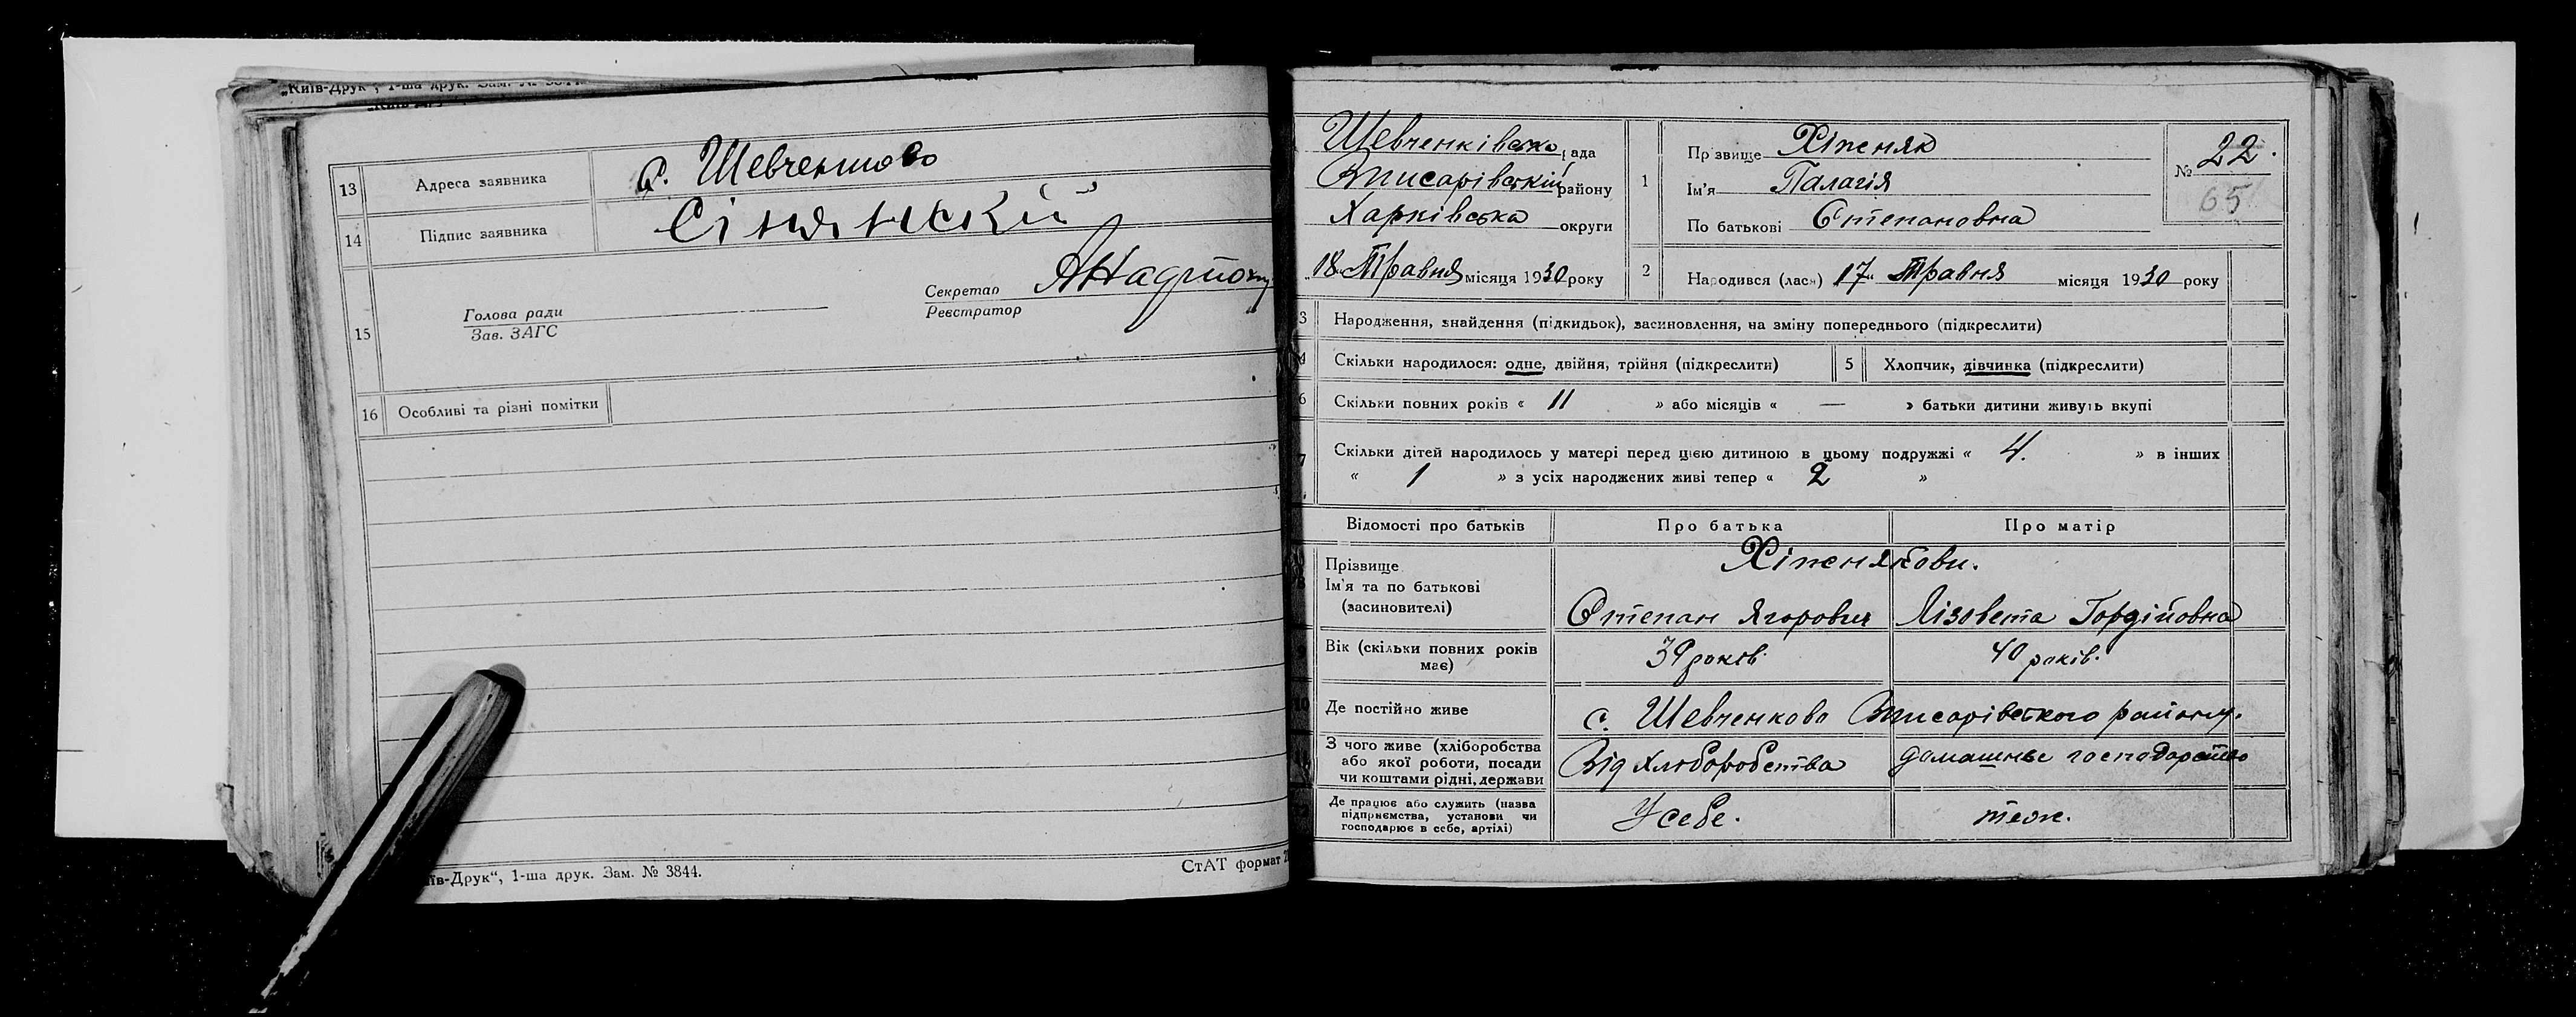 „Київ-Друк", 1-ша друк. Зам. №
13 Адреса заявника с. Шевченково
14 Підпис заявника
15 Голова ради
Зав. ЗАГС
Секретар
Реєстратор
16 Особливі та різні помітки
їв-Друк“, 1-ша друк. Зам. № 3844.
СтАТ формат
Шевченківська рада
Вписарівський району
Харківська округи
„18" Травня місяця 1930 року
1 Прізвище Хіпеняк
Ім'я Палагія
По батькові Степановна
№ 22.
65
2 Народився (лась) 17 „ Травня місяця 1930 року
3 Народження, знайдення (підкидьок), засиновлення, на зміну попереднього (підкреслити)
4 Скільки народилося: одне, двійня, трійня (підкреслити) 5 Хлопчик, дівчинка (підкреслити)
6 Скільки повних років « 11 » або місяців « — » батьки дитини живуть вкупі
7 Скільки дітей народилось у матері перед цією дитиною в цьому подружжі « 4. » в інших
« 1 » з усіх народжених живі тепер « 2 »
Відомості про батьків Про батька Про матір
Прізвище Хіпенякови.
Ім'я та по батькові
(засиновителі) Степан Ягорович Лізовета Гордійовна
Вік (скільки повних років
має) 39 років. 40 років.
10 Де постійно живе с. Шевченково Вписарівского району.
З чого живе (хліборобства
або якої роботи, посади
чи коштами рідні, держави Від хлібородства домашнье господарство
Де працює або служить (назва
підприємства, установи чи
господарює в себе, артілі) У себе. теж.